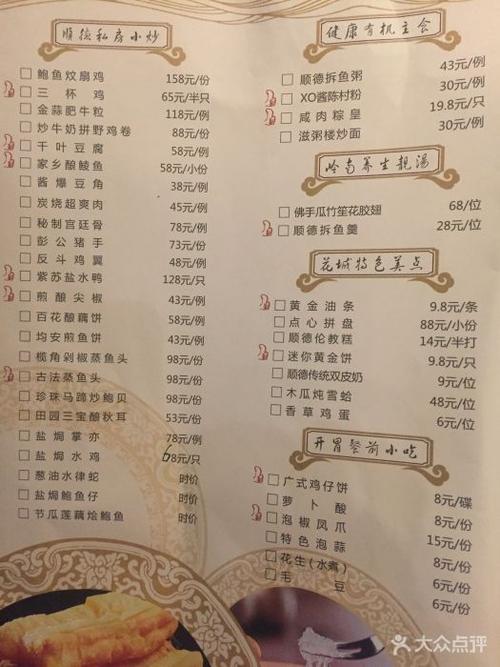 顺德私房小炒
鲍鱼炆扇鸡 158元/份
三杯鸡 65元/半只
金蒜肥牛粒 118元/例
炒牛奶拼野鸡卷 88元/份
千叶豆腐 58元/例
家乡酿鲮鱼 58元/小份
酱爆豆角 38元/例
炭烧超爽肉 45元/例
秘制宫廷骨 78元/例
彭公猪手 73元/份
反斗鸡翼 48元/例
紫苏盐水鸭 128元/只
煎酿尖椒 43元/例
百花酿藕饼 58元/例
均安煎鱼饼 58元/例
榄角剁椒蒸鱼头 98元/份
古法蒸鱼头 98元/份
珍珠马蹄炒鲍贝 98元/份
田园三宝酿秋耳 53元/份
盐焗掌亦 78元/例
盐焗水鸡 68元/只
葱油水律蛇 时价
盐焗鲍鱼仔 时价
节瓜莲藕烩鲍鱼 时价
健康有机主食
顺德拆鱼粥 43元/例
XO酱陈村粉 30元/例
咸肉粽皇 19.8元/只
滋粥楼炒面 30元/例
岭南养生靓汤
佛手瓜竹笙花胶翅 68/位
顺德拆鱼羹 28元/位
花城特色美点
黄金油条 9.8元/条
点心拼盘 88元/小份
顺德伦教糕 14元/半打
迷你黄金饼 9.8元/只
顺德传统双皮奶 9元/位
木瓜炖雪蛤 48元/位
香草鸡蛋 6元/位
开胃餐前小吃
广式鸡仔饼 8元/碟
萝卜酸 8元/份
泡椒凤爪 15元/份
特色泡蒜 8元/份
花生(水煮) 6元/份
毛豆 6元/份
大众点评